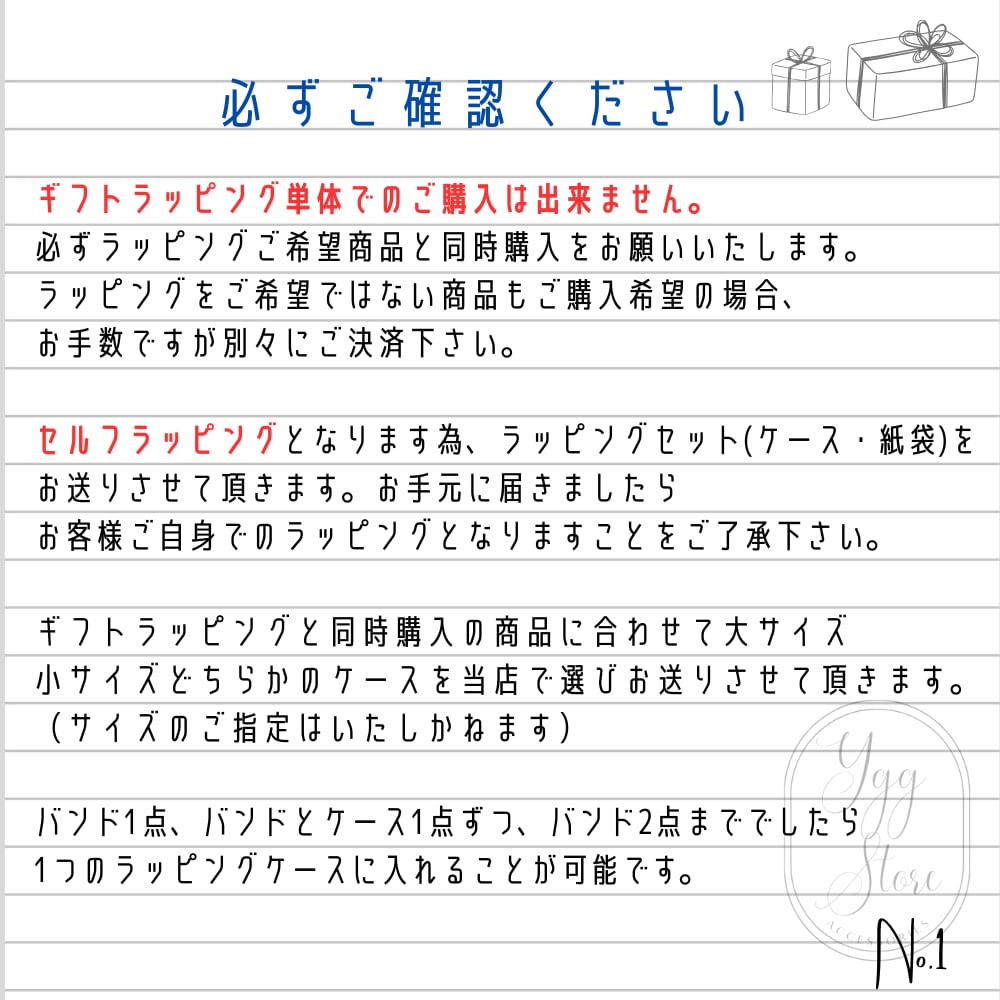 必ずご確認ください
ギフトラッピング単体でのご購入は出来ません。
必ずラッピングご希望商品と同時購入をお願いいたします。
ラッピングをご希望ではない商品もご購入希望の場合、
お手数ですが別々にご決済下さい。
セルフラッピングとなります為、ラッピングセット(ケース・紙袋)を
お送りさせて頂きます。お手元に届きましたら
お客様ご自身でのラッピングとなりますことをご了承下さい。
ギフトラッピングと同時購入の商品に合わせて大サイズ
小サイズどちらかのケースを当店で選びお送りさせて頂きます。
(サイズのご指定はいたしかねます)
バンド1点、バンドとケース1点ずつ、バンド2点まででしたら
1つのラッピングケースに入れることが可能です。
Ygg
Store
ACCESSORIES
No.1